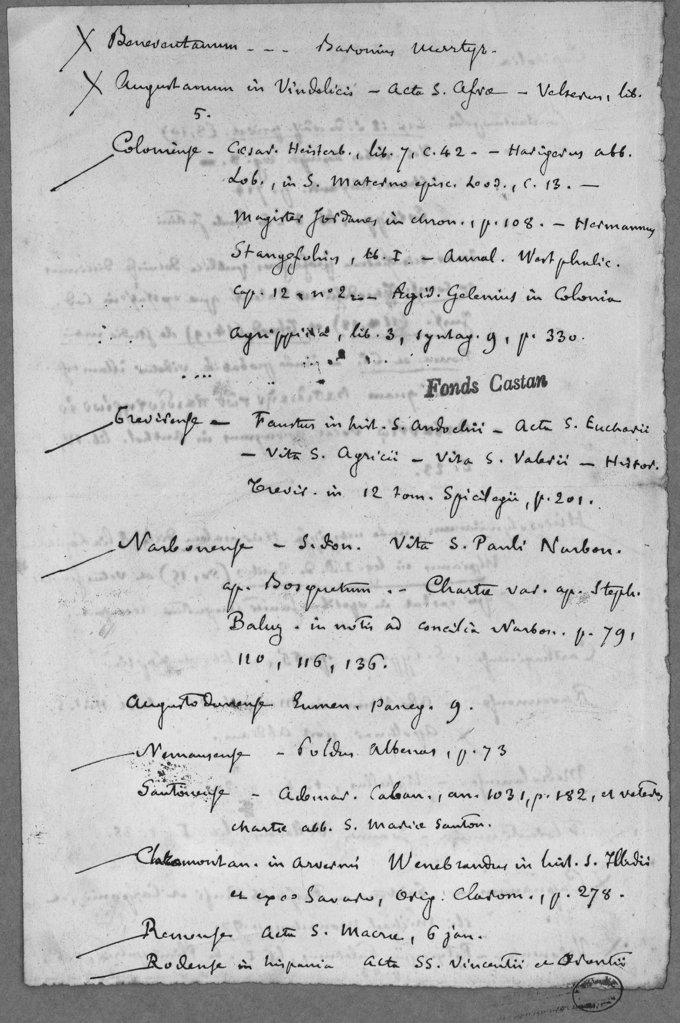 X Beneventanum - - - Baronius Martyr.
X Augustanum in Vindelicis - Acta S. Afræ - Velserus, lib.
5.
Coloniense - Cæsar. Heisterb., lib. 7, c. 42 - - Harigerus abb.
Lob., in S. Materno episc. Leod., c. 13. -
Magister Jordanes in chron., p. 108. - Hermannus
Stangefolius, lib. I - Annal. Westphalic.
cap. 12, nº 2 -- Ægid. Gelenius in Colonia
Agrippinâ, lib. 3, syntag. 9, p. 330.
Fonds Castan
Trevirense - Faustus in hist. S. Andochii - Acta S. Eucharii
- Vita S. Agricii - Vita S. Valerii - Histor.
Trevir. in 12 tom. Spicilegii, p. 201.
Narbonense - Sidon. Vita S. Pauli Narbon.
ap. Bosquetum. - Chartæ var. ap. Steph.
Baluz. in notis ad concilia Narbon. p. 79,
110, 116, 136.
Augustodunense Eumen. Paneg. 9.
Nemausense - Poldus Albenas, p. 73
Santonense - Ademar. Caban., an. 1031, p. 182, et veteres
chartæ abb. S. Mariæ Santon.
Claromontan. in Arvernis Wenebrandus in hist. S. Illidii
et ex Savaro, Orig. Clarom., p. 278.
Remense Acta S. Macræ, 6 jan.
Rodense in hispania Acta SS. Vincentii et Orontii